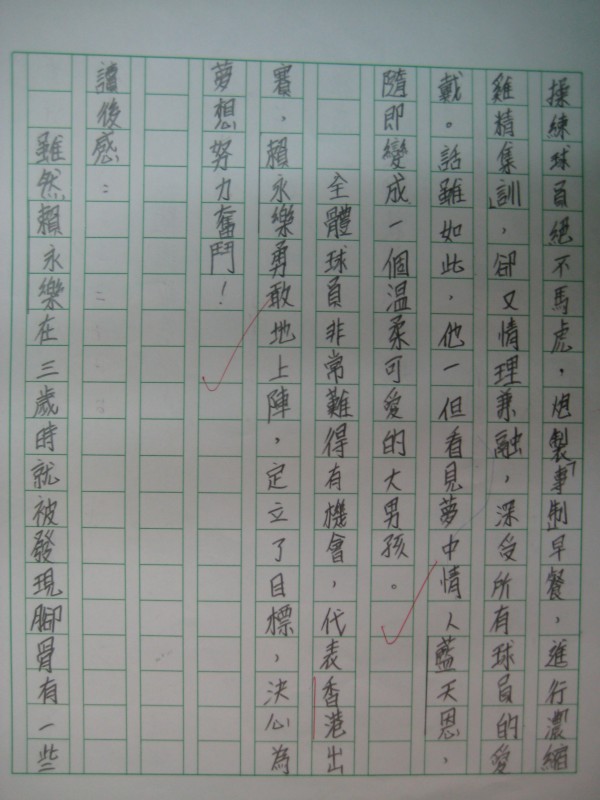 操練球員絕不馬虎，炮製「專制早餐，進行濃縮
雞精集訓」，卻又情理兼融，深受所有球員的愛
戴。話雖如此，他一但看見夢中情人藍天恩，
隨即變成一個溫柔可愛的大男孩。
全體球員非常難得有機會，代表香港出
賽，賴永樂勇敢地上陣，定立了目標，決心為
夢想努力奮鬥！
讀後感：
雖然賴永樂在三歲時就被發現腳骨有一些